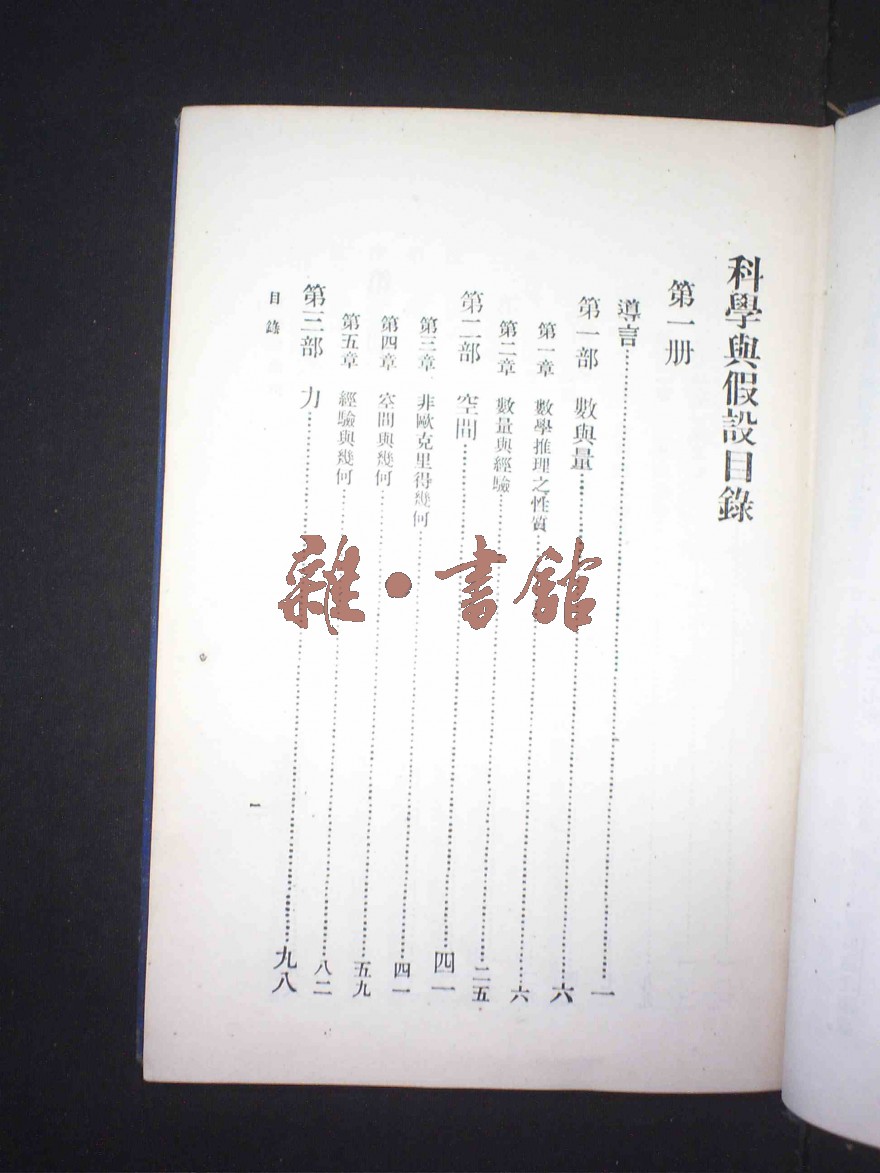 科學與假設目錄
第一册
導言……一
第一部 數與量……六
第一章 數學推理之性質……六
第二章 數量與經驗……二五
第二部 空間……四一
第三章 非歐克里得幾何……四一
第四章 空間與幾何……五九
第五章 經驗與幾何……八二
第三部 力……九八
目錄
一
雜·書館